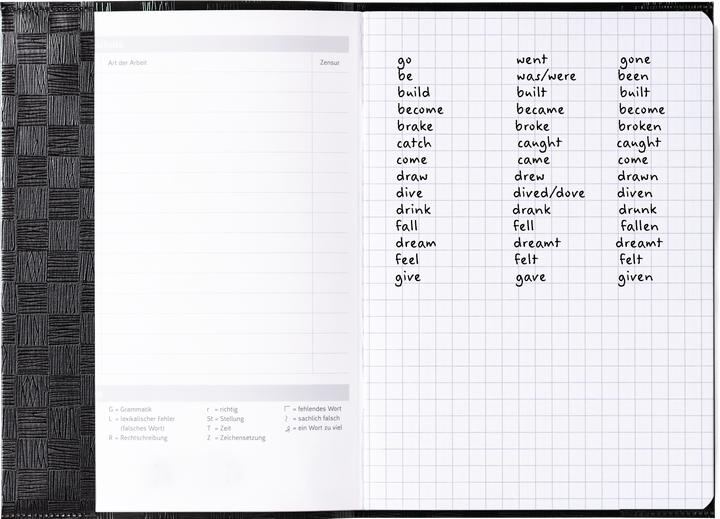 Art der Arbeit Zensur
go went gone
be was/were been
build built built
become became become
brake broke broken
catch caught caught
come came come
draw drew drawn
dive dived/dove diven
drink drank drunk
fall fell fallen
dream dreamt dreamt
feel felt felt
give gave given
G = Grammatik
L = lexikalischer Fehler
(falsches Wort)
R = Rechtschreibung
r = richtig
St = Stellung
T = Zeit
Z = Zeichensetzung
= fehlendes Wort
? = sachlich falsch
= ein Wort zu viel